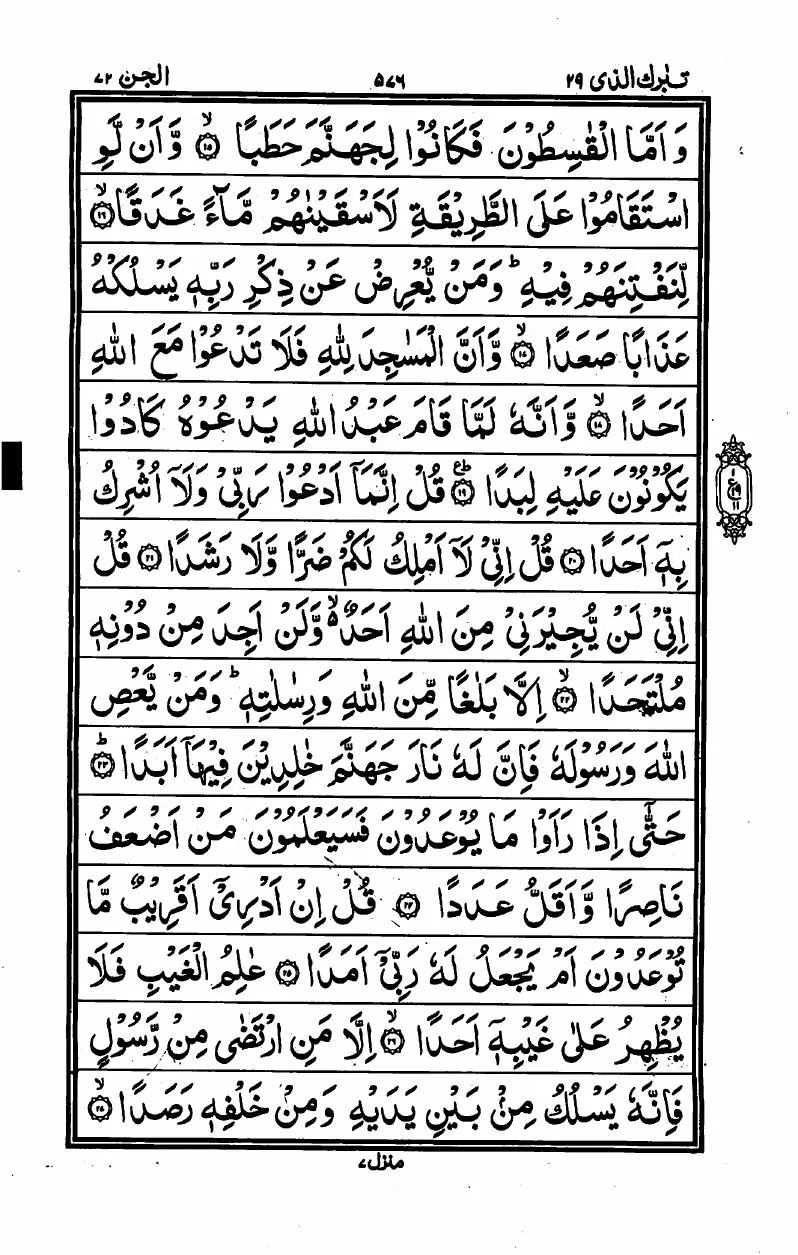 تبٰرك الذی ۲۹ ۵۷۶ الجن ۷۲
وَ اَمَّا الْقٰسِطُوْنَ فَكَانُوْا لِجَهَنَّمَ حَطَبًا ۙ﴿۱۵﴾ وَّ اَنْ لَّوِ
اسْتَقَامُوْا عَلَى الطَّرِیْقَةِ لَاَسْقَیْنٰهُمْ مَّآءً غَدَقًا ۙ﴿۱۶﴾
لِّنَفْتِنَهُمْ فِیْهِ ؕ وَمَنْ یُّعْرِضْ عَنْ ذِكْرِ رَبِّهٖ یَسْلُكْهُ
عَذَابًا صَعَدًا ۙ﴿۱۷﴾ وَّاَنَّ الْمَسٰجِدَ لِلّٰهِ فَلَا تَدْعُوْا مَعَ اللّٰهِ
اَحَدًا ۙ﴿۱۸﴾ وَّاَنَّهٗ لَمَّا قَامَ عَبْدُ اللّٰهِ یَدْعُوْهُ كَادُوْا
یَكُوْنُوْنَ عَلَیْهِ لِبَدًا ؕ﴿۱۹﴾ قُلْ اِنَّمَاۤ اَدْعُوْا رَبِّیْ وَلَاۤ اُشْرِكُ
بِهٖۤ اَحَدًا ﴿۲۰﴾ قُلْ اِنِّیْ لَاۤ اَمْلِكُ لَكُمْ ضَرًّا وَّلَا رَشَدًا ﴿۲۱﴾ قُلْ
اِنِّیْ لَنْ یُّجِیْرَنِیْ مِنَ اللّٰهِ اَحَدٌ ۙ۬ وَّلَنْ اَجِدَ مِنْ دُوْنِهٖ
مُلْتَحَدًا ۙ﴿۲۲﴾ اِلَّا بَلٰغًا مِّنَ اللّٰهِ وَرِسٰلٰتِهٖ ؕ وَمَنْ یَّعْصِ
اللّٰهَ وَرَسُوْلَهٗ فَاِنَّ لَهٗ نَارَ جَهَنَّمَ خٰلِدِیْنَ فِیْهَاۤ اَبَدًا ؕ﴿۲۳﴾
حَتّٰۤی اِذَا رَاَوْا مَا یُوْعَدُوْنَ فَسَیَعْلَمُوْنَ مَنْ اَضْعَفُ
نَاصِرًا وَّاَقَلُّ عَدَدًا ﴿۲۴﴾ قُلْ اِنْ اَدْرِیْۤ اَقَرِیْبٌ مَّا
تُوْعَدُوْنَ اَمْ یَجْعَلُ لَهٗ رَبِّیْۤ اَمَدًا ﴿۲۵﴾ عٰلِمُ الْغَیْبِ فَلَا
یُظْهِرُ عَلٰی غَیْبِهٖۤ اَحَدًا ۙ﴿۲۶﴾ اِلَّا مَنِ ارْتَضٰی مِنْ رَّسُوْلٍ
فَاِنَّهٗ یَسْلُكُ مِنْۢ بَیْنِ یَدَیْهِ وَمِنْ خَلْفِهٖ رَصَدًا ۙ﴿۲۷﴾
منزل ۷